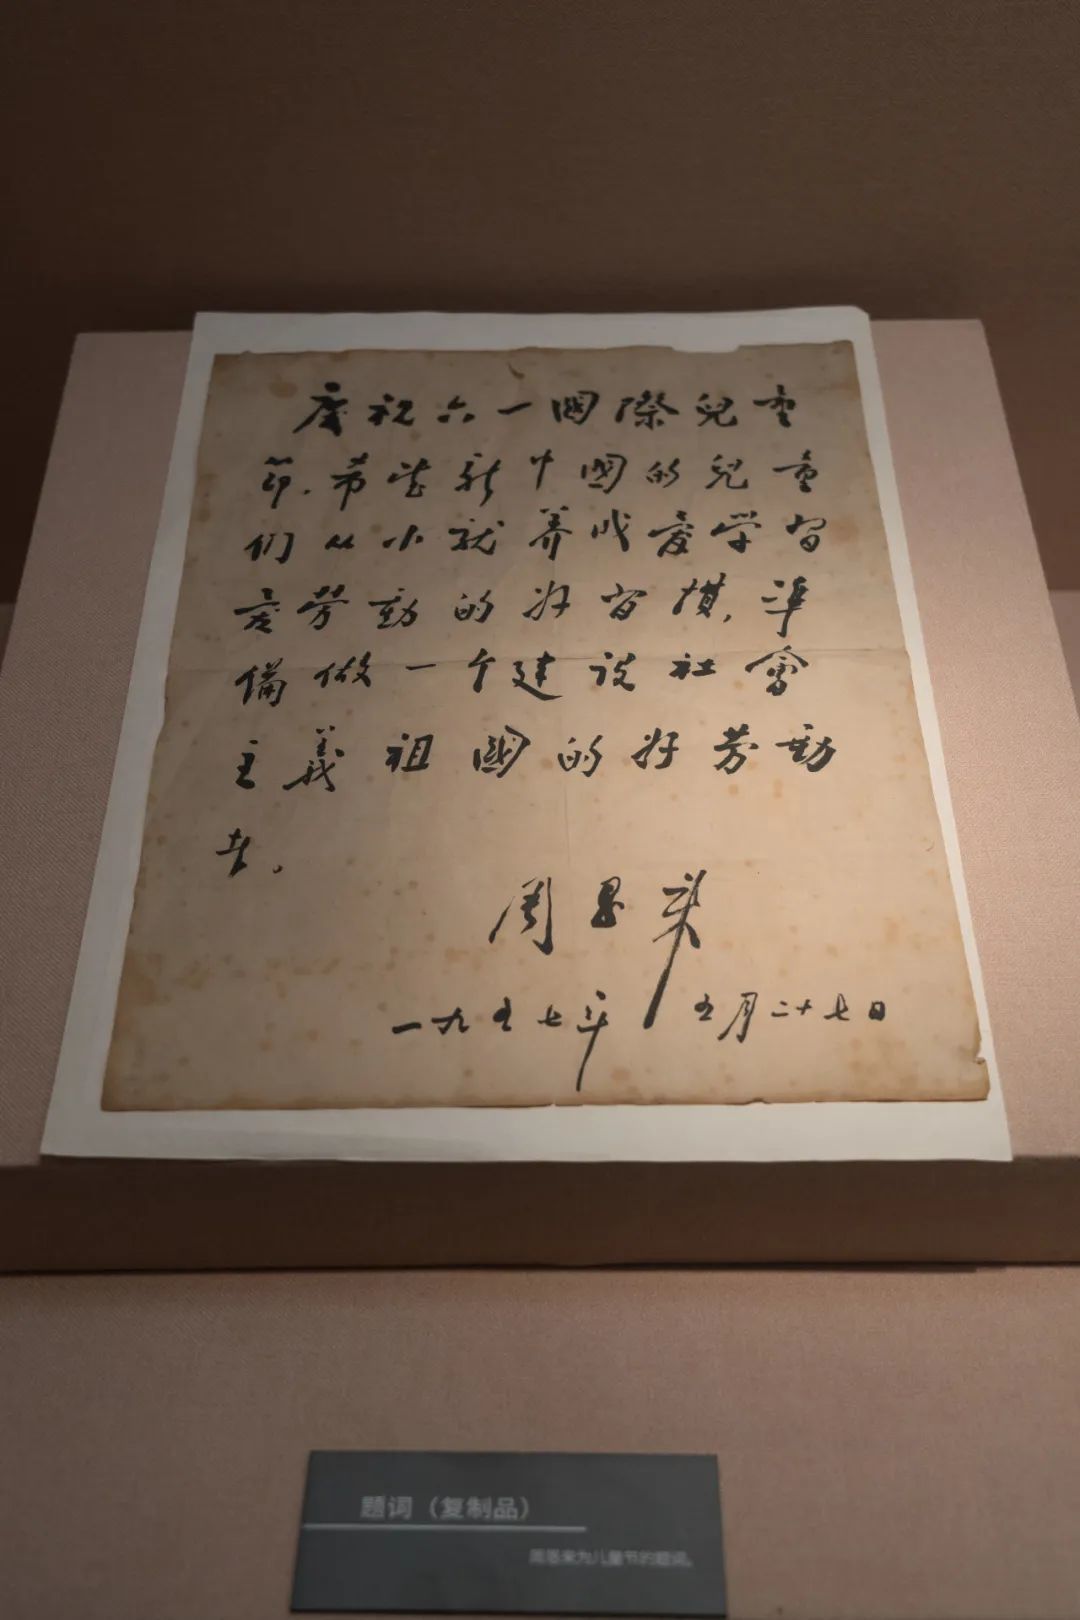 慶祝六一國際兒童
節．希望新中國的兒童
们从小就养成爱学習
爱劳動的好習慣，準
備做一个建設社會
主義祖國的好劳動
者。
周恩来
一九五七年 五月二十七日
题词（复制品）
周恩来为儿童节的题词。